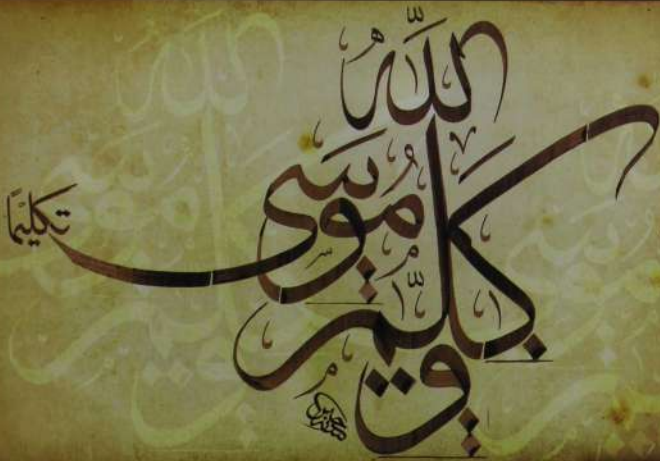 وَكَلَّمَ اللهُ مُوسَى تَكْلِيمًا